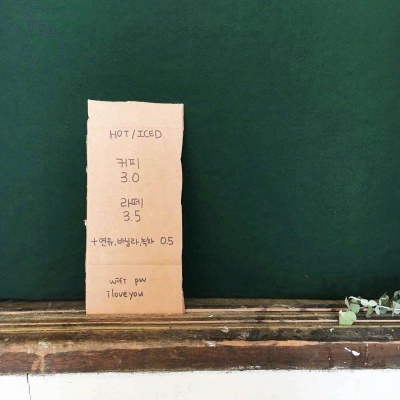 HOT/ICED
커피
3.0
라떼
3.5
+연유,바닐라,녹차 0.5
wifi pw
i love you